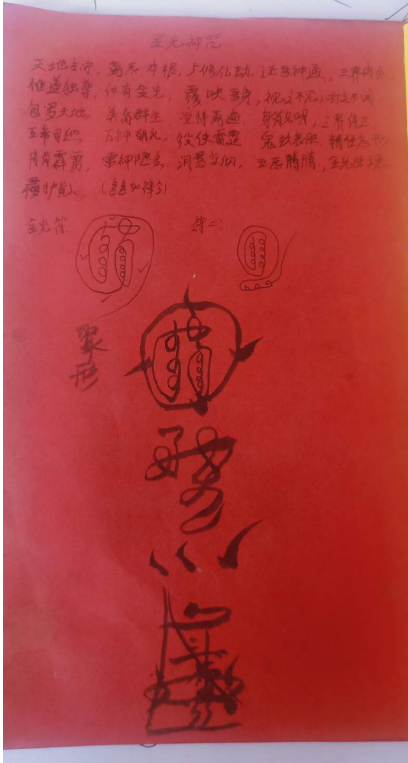 金光神咒
天地玄宗,万炁本根,广修亿劫,证吾神通,三界内外
惟道独尊,体有金光,覆映吾身,视之不见,听之不闻
包罗天地,养育群生,受持万遍,身有光明,三界侍卫
五帝司迎,万神朝礼,役使雷霆,鬼妖丧胆,精怪忘形
内有霹雳,雷神隐名,洞慧交彻,五炁腾腾,金光速现
覆护真人,(急急如律令)
象形